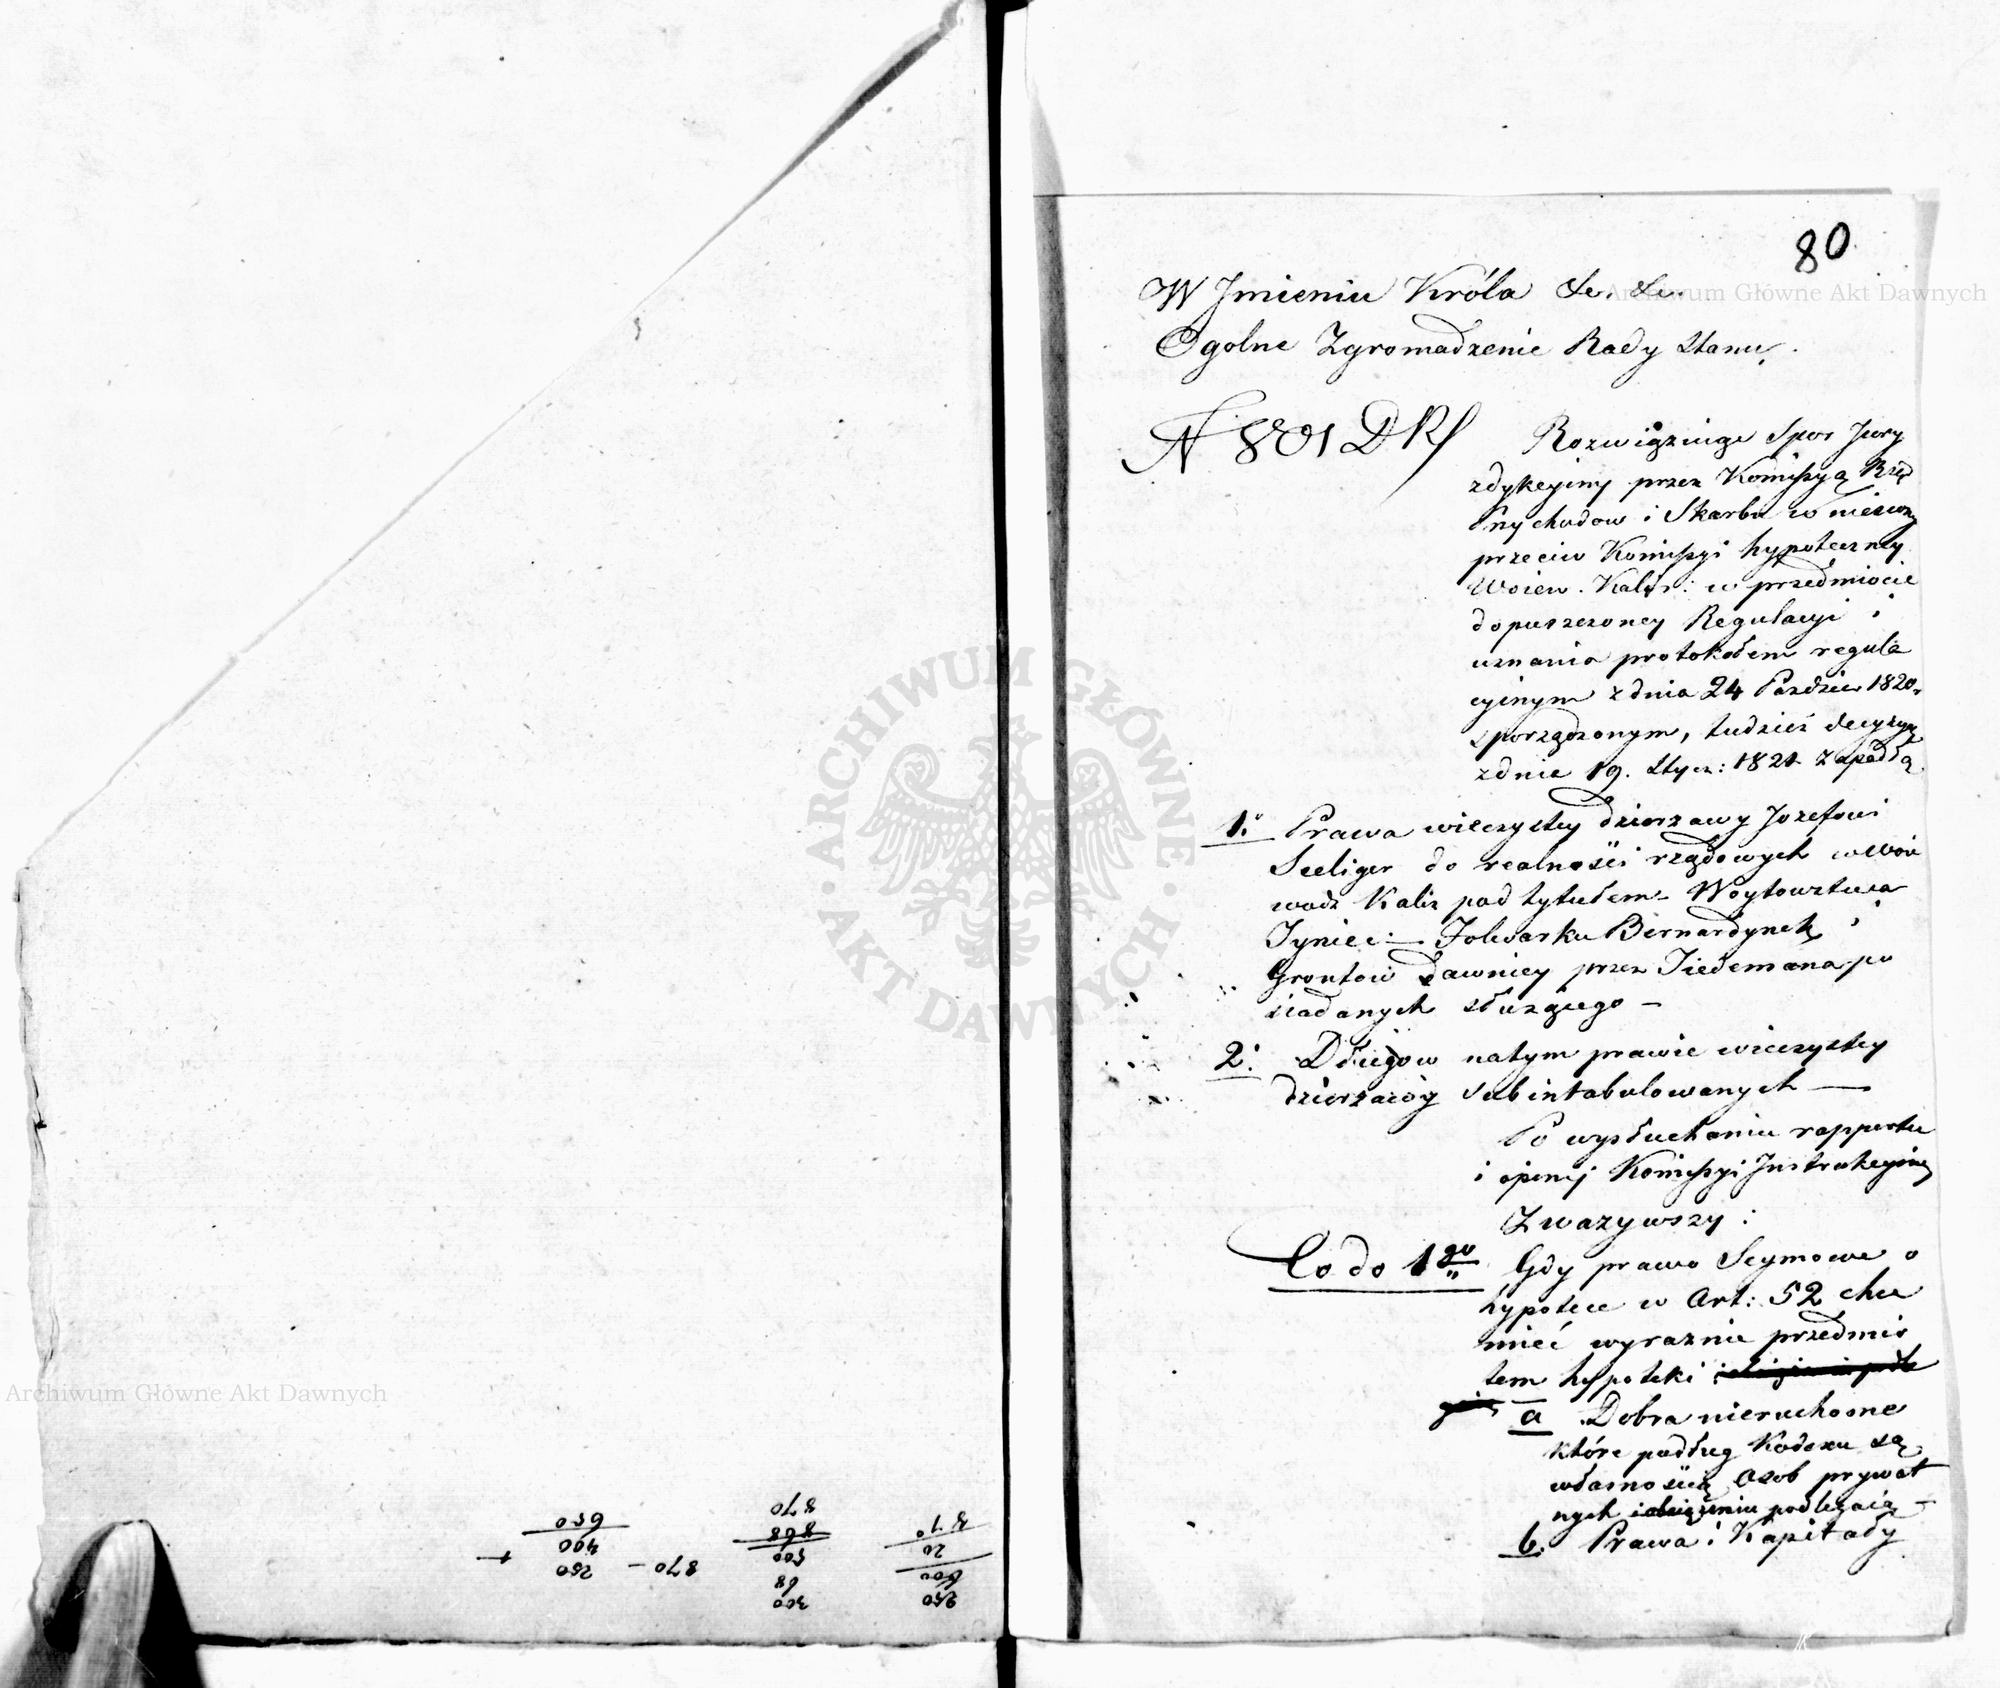 80
W Jmieniu Króla &c. &c.
Ogolne Zgromadzenie Rady Stanu.
N 801 DKS
Rozwiązuiąc Spor Jury
zdykcyiny przez Kommissyą Rząd
Przychodow i Skarbu wniesiony
przeciw Kommissyi hypoteczney
Woiew. Kalis: w przedmiocie
dopuszczoney Regulacyi i
uznania protokołem regula
cyinym z dnia 24 Pazdzier 1820.
sporządzonym, tudzież decyzyą
z dnia 19. Stycz: 1821 zapadłą
1.° Prawa wieczystey dzierzawy Jozefowi
Seeliger do realności rządowych w Woie
wodz Kalis pod tytułem Woytowstwa
Tyniec: — Folwarku Bernardynek i
Grontow dawniey przez Tiedemana po
siadanych służącego —
2° Długow na tym prawie wieczystey
dzierzawy subintabulowanych —
Po wysłuchaniu rapportu
i opinij Kommissyi Instrukcyiney
Zwazywszy:
Co do 1go Gdy prawo Seymowe o
hypotece w Art: 52 chce
mieć wyraznie przedmio
tem hypoteki
a Dobra nieruchome
które podług Kodexu są
własnością Osob prywat
nych i obciążeniu podlegaią —
b. Prawa i Kapitały
250
600
20
870
300
68
500
868
870
870 —
250
400
650
Archiwum Główne Akt Dawnych
Archiwum Główne Akt Dawnych
ARCHIWUM GŁÓWNE · AKT DAWNYCH ·